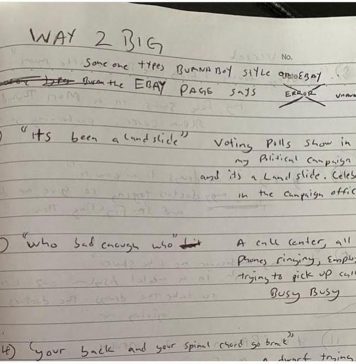 WAY 2 BIG
No.
Some one types BURNABOY STYLE on EBAY
Burn the EBAY PAGE SAYS ERROR
"Its been a landslide" Voting Polls show in
my Political campaign
and its a Landslide. Celeb
in the campaign offic
) "Who bad enough who" A call center, all
Phones ringing, Employ
trying to pick up call
Busy Busy
4) "your back and your spinal chord go break"
a dwarf trying